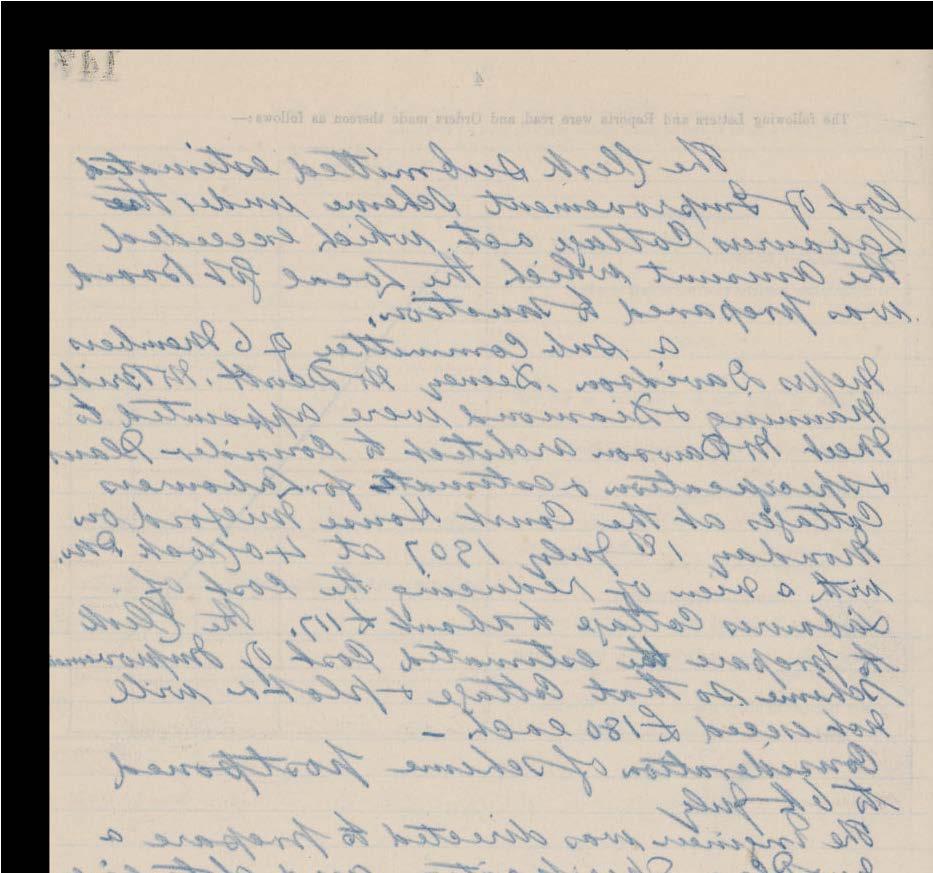 147
4
The following Letters and Reports were read, and Orders made thereon as follows:—
The Clerk submitted estimated
Cost of Improvement Scheme under the
Labourers Cottage act which exceeded
the amount which the Local Gt Board
was prepared to sanction.
a Sub Committee of 6 Members
Messrs Davidson, Deeney, McDevitt, McBride
Manning & Diamond were appointed to
Meet Mr Dawson architect to consider Plans
& specification & estimate for Labourers
Cottages at the Court House Milford on
Monday 1st July 1907 at 4 oclock
with a view of reducing the cost of
Labourers Cottage to about £117. The Clerk
to prepare the estimated Cost of Improvement
Scheme so that Cottage & plot will
not exceed £180 each –
Consideration of scheme postponed
to July
The Engineer was directed to prepare a